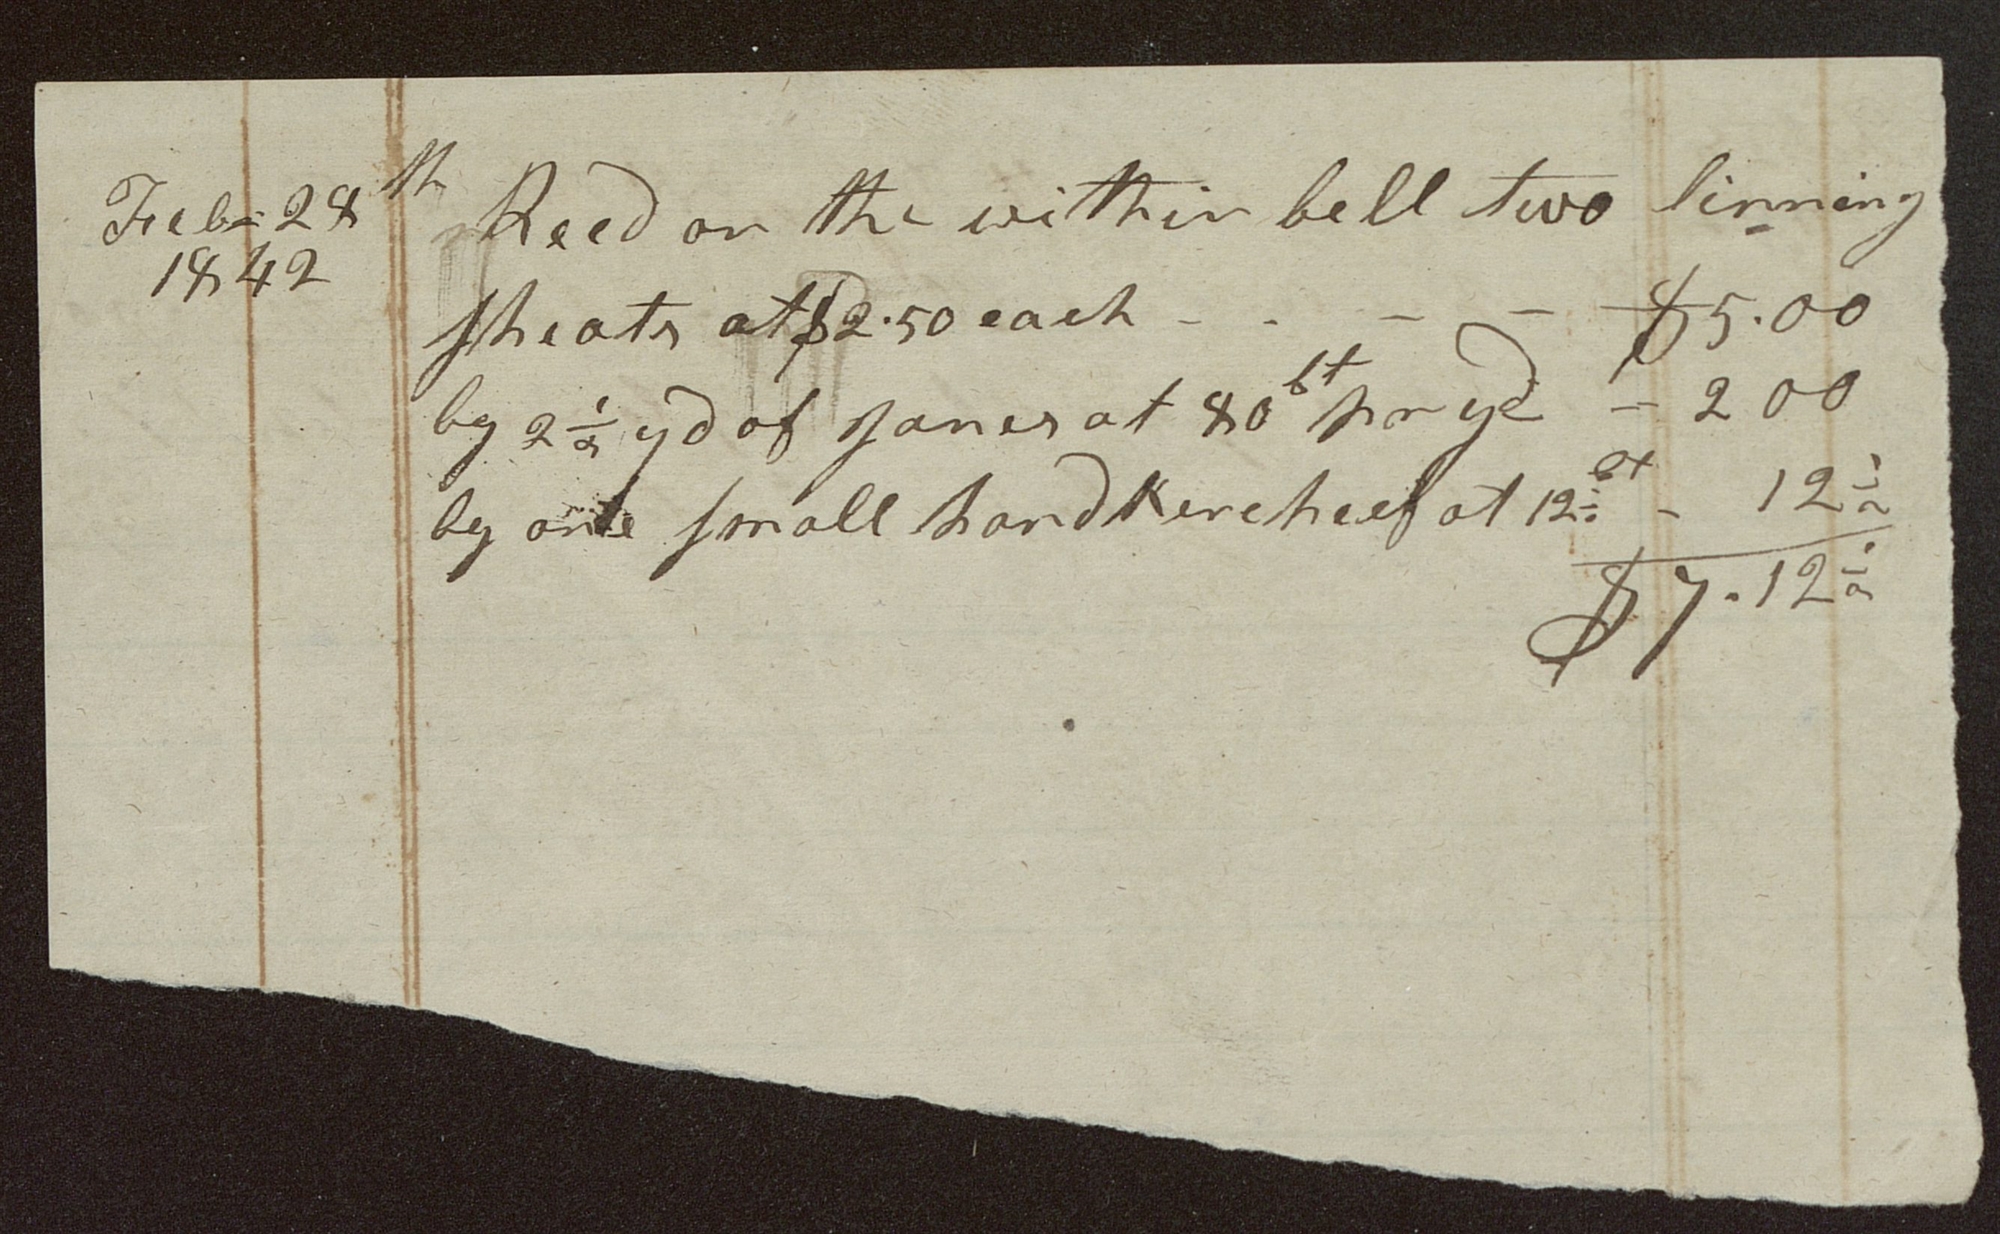 Feb= 28th Recd on the within bell two linning
1842
sheats at $2.50 each - - - - $5.00
by 2 1/2 yd of Janes at 80 ct pr yd - 2 00
by one small handkercheef at 12 1/2 ct - 12 1/2
$7.12 1/2